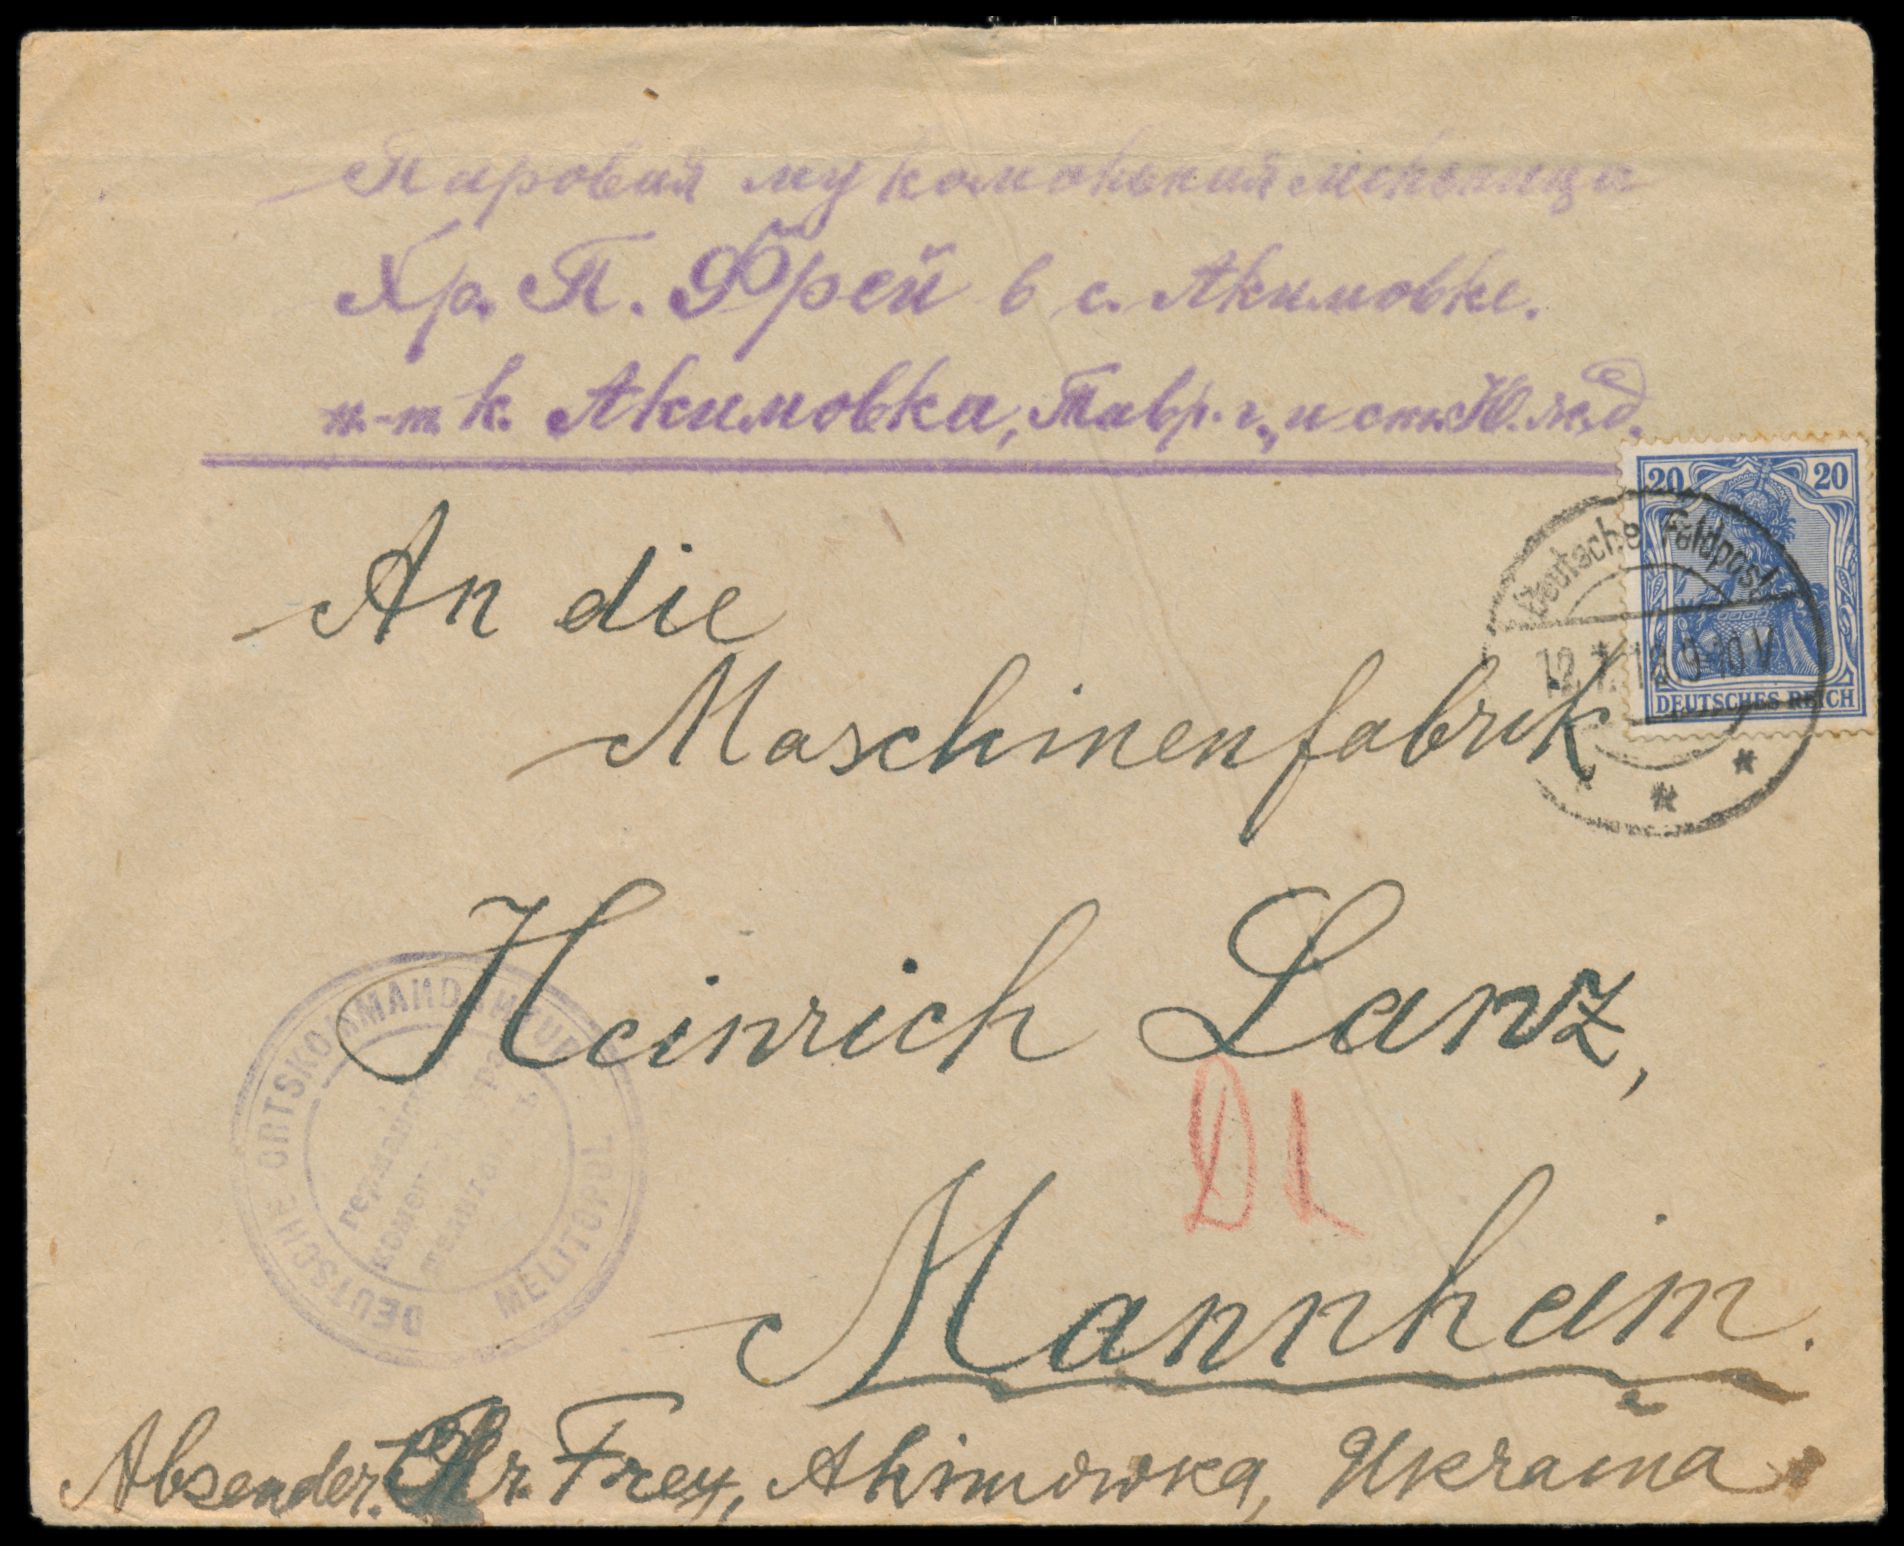 Паровая мукомольная мельница
Хр. П. Фрей в с. Акимовке.
п.-т. к. Акимовка, Тавр. г., и ст. Ю. ж. д.
20 20
Deutsche Feldpost
12.7.18 9-10 V
DEUTSCHES REICH
* * *
An die
Maschinenfabrik
Heinrich Lanz,
Mannheim.
DEUTSCHE ORTSKOMMANDANTUR
MELITOPOL
Absender: Chr. Frey, Akimowka, Ukraina